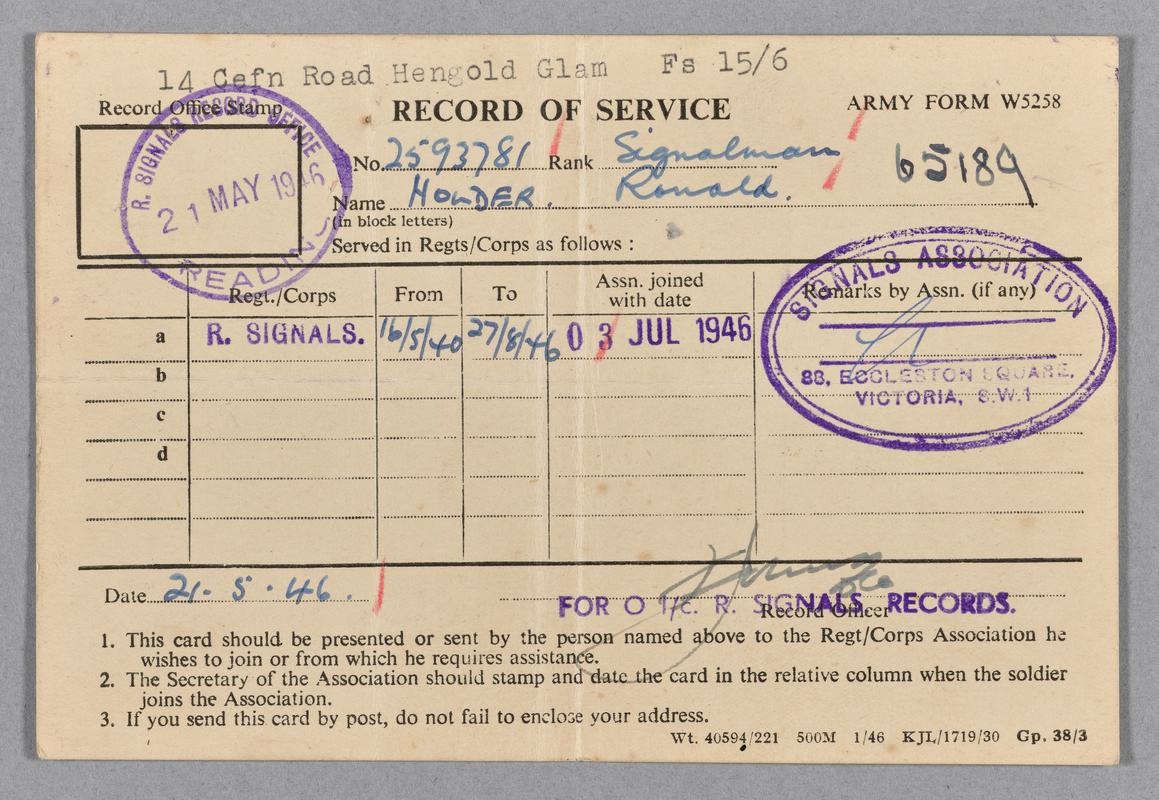 14 Cefn Road Hengold Glam Fs 15/6
Record Office Stamp RECORD OF SERVICE ARMY FORM W5258
R. SIGNALS RECORD OFFICE
21 MAY 1946
READING
No. 2593781 Rank Signalman 65189
Name HOLDER. Ronald.
(in block letters)
Served in Regts/Corps as follows :
Regt./Corps From To Assn. joined with date Remarks by Assn. (if any)
SIGNALS ASSOCIATION
88, ECCLESTON SQUARE,
VICTORIA, S.W.1
a R. SIGNALS. 16/5/40 27/8/46 03 JUL 1946
b
c
d
Date 21. 5. 46.
FOR O I/c. R. SIGNALS RECORDS.
Record Officer
1. This card should be presented or sent by the person named above to the Regt/Corps Association he
wishes to join or from which he requires assistance.
2. The Secretary of the Association should stamp and date the card in the relative column when the soldier
joins the Association.
3. If you send this card by post, do not fail to enclose your address.
Wt. 40594/221 500M 1/46 KJL/1719/30 Gp. 38/3